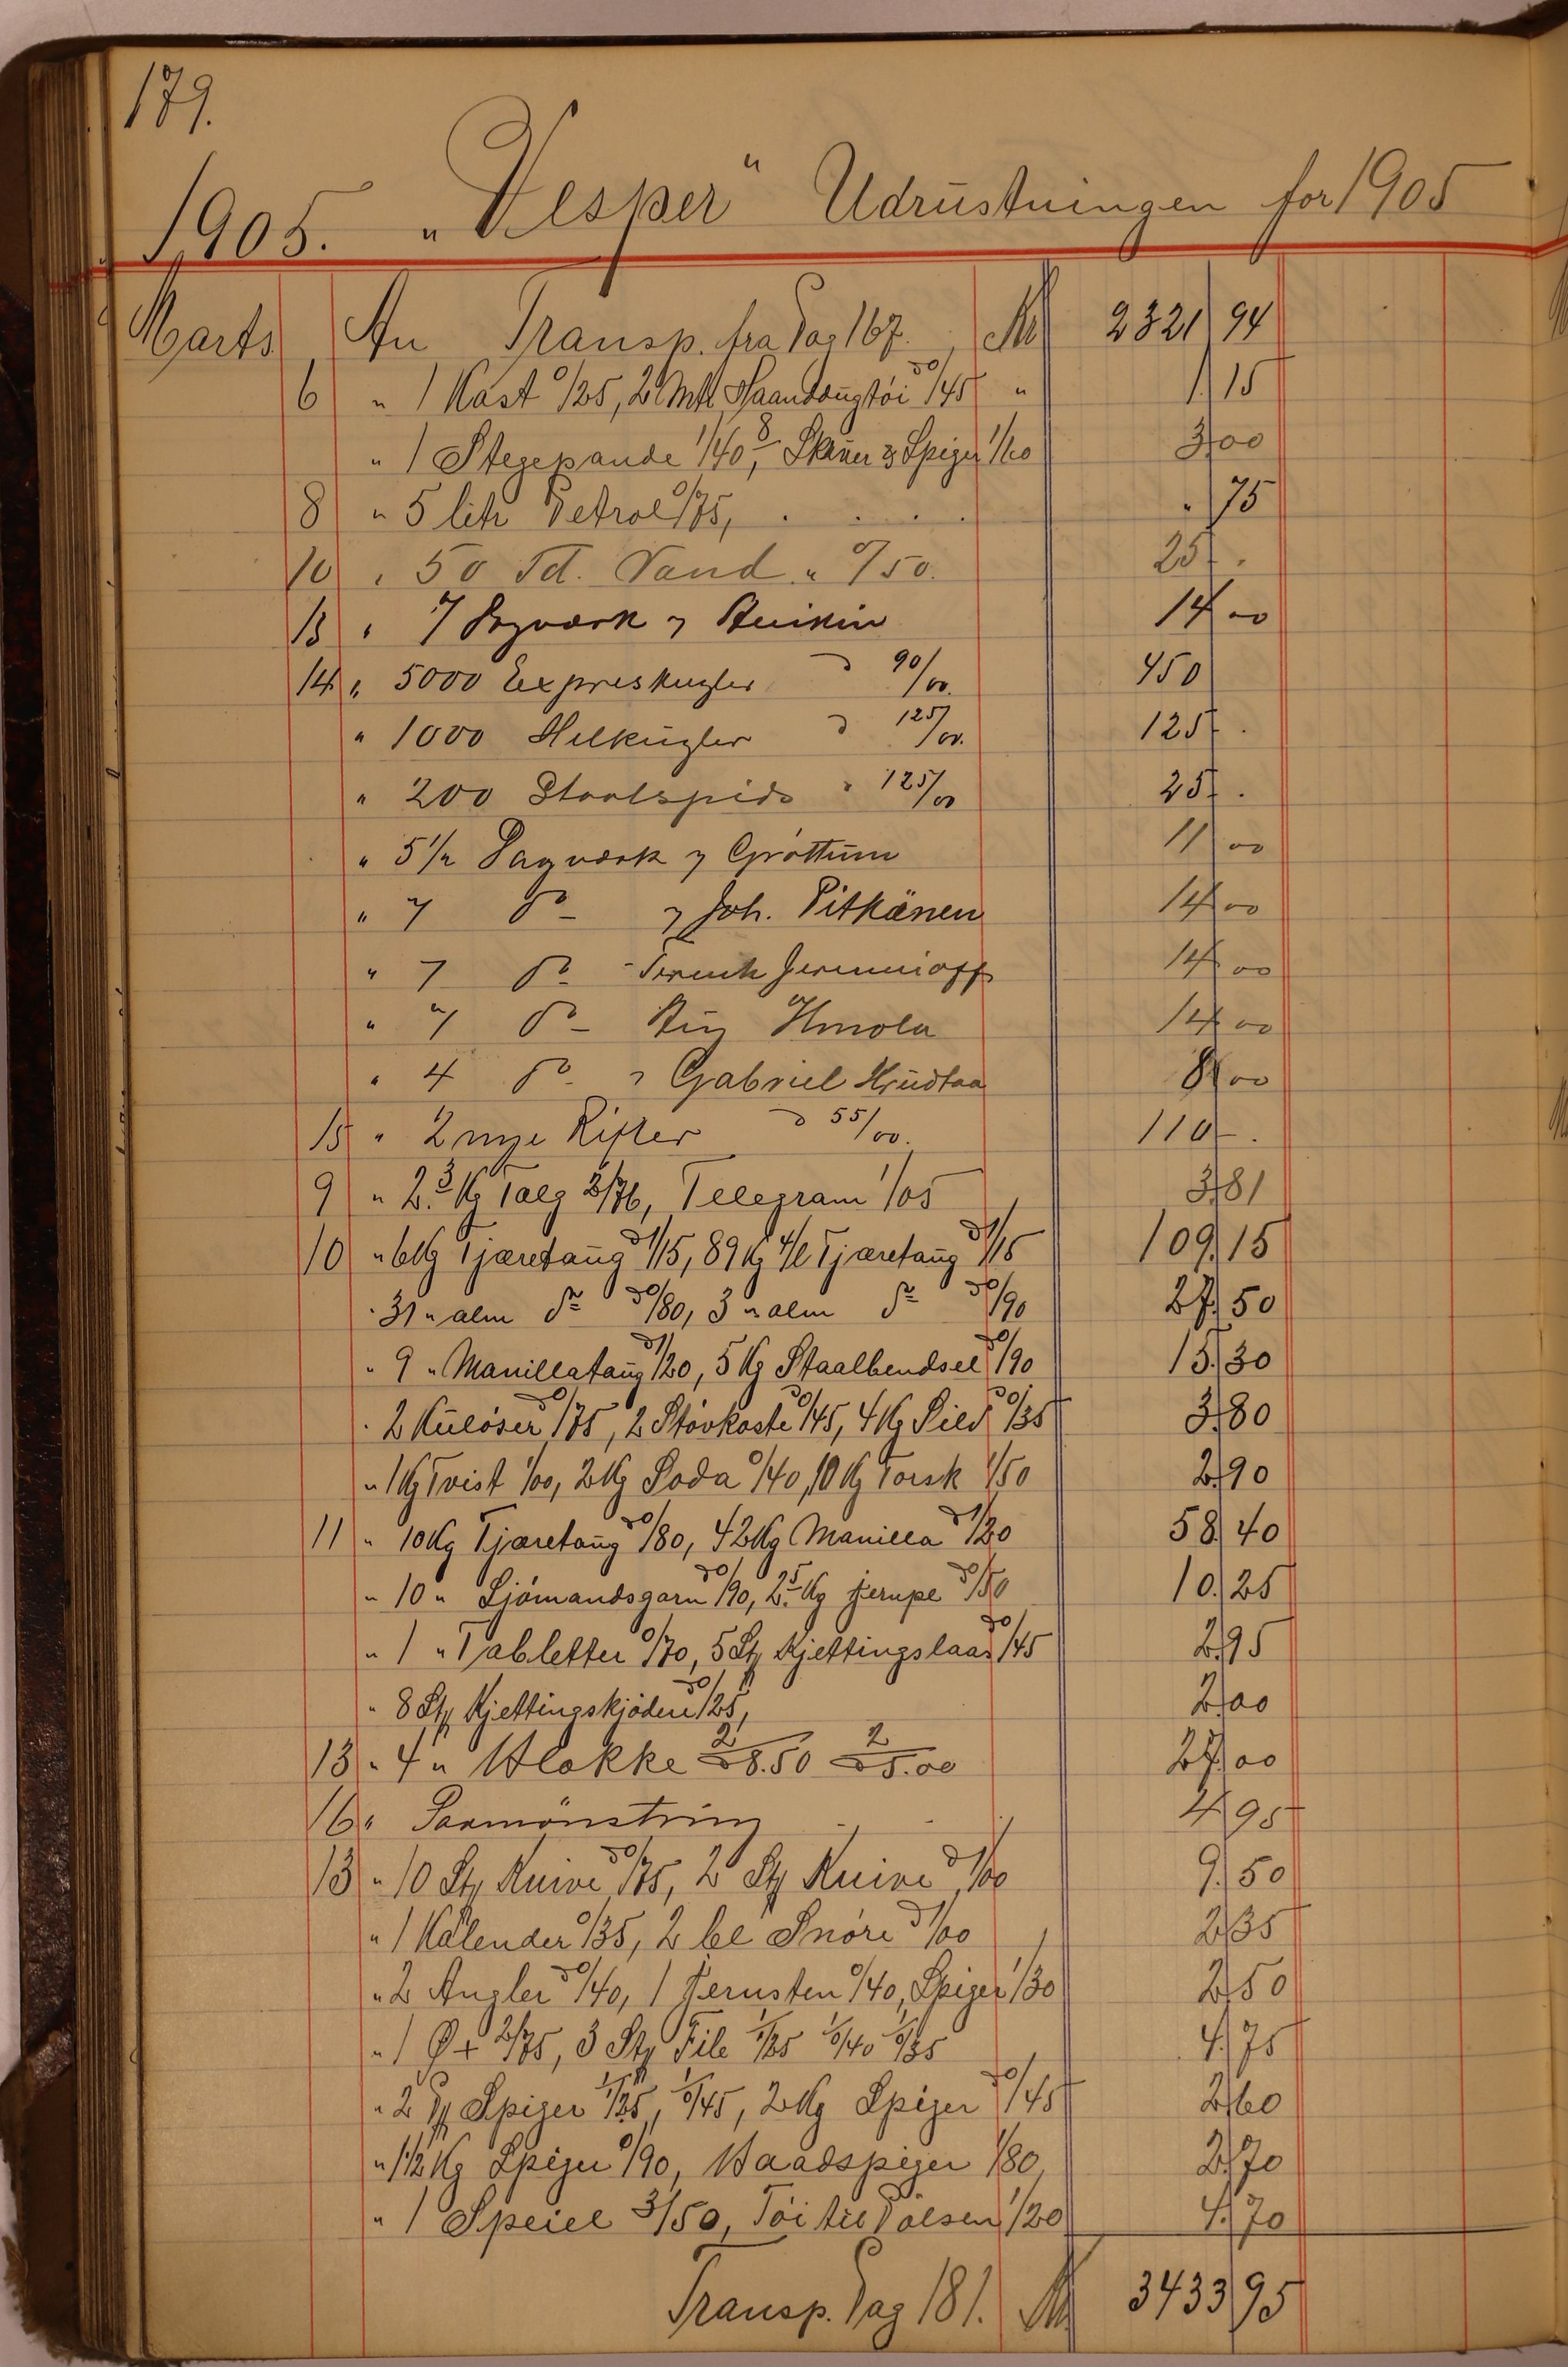 179.
1905. "Vesper" Udrustningen for 1905
Marts An Transp. fra Pag 167. Kr 2321 94
6 " 1 Kost 0/25, 2 Mtr Haandougtöi à 0/45 " 1.15
" 1 Stegepande 1/40, Skruer & Spiger 1/60 3.00
8 " 5 litr Petrol 0/75, . . . . " 75
10 " 50 Td. Vand " 0/50. 25 .
13 " 7 Dagværk 14 00
14 " 5000 Expreskugler à 90/00. 450
" 1000 Helkugler à 125/00. 125 .
" 200 Staalspids " 125/00 25 .
" 5 1/2 Dagværk Gröttum 11 00
" 7 do Joh. Pitkänen 14 00
" 7 do 14 00
" 7 do 14 00
" 4 do Gabriel 8 00
15 " 2 nye Rifler à 55/00. 110 .
9 " 2.3 Kg Talg 2/76, Telegram 1/05 3.81
10 " 6 Kg Tjæretaug à 1/15, 89 Kg 4/l Tjæretaug à 1/15 109.15
" 31 " alm do à 0/80, 3 " alm do à 0/90 27.50
" 9 " Manillataug à 1/20, 5 Kg Staalbendsel à 0/90 15.30
" 2 Kulöser à 0/75, 2 Stövkoste à 0/45, 4 Kg Sild à 0/35 3.80
" 1 Kg Tvist 1/00, 2 Kg Soda 0/40, 10 Kg Torsk 1/50 2.90
11 " 10 Kg Tjæretaug à 0/80, 42 Kg Manilla à 1/20 58.40
" 10 " Sjömandsgarn à 0/90, 2.5 Kg à 0/50 10.25
" 1 " Tabletter 0/70, 5 Stk Kjettingslaas à 0/45 2.95
" 8 Stk Kjettingskjöder à 0/25, 2.00
13 " 4 " Blokke 2 à 8.50 2 à 5.00 27.00
16 " 4.95
13 " 10 Stk Knive à 0/75, 2 Stk Knive à 1/00 9.50
" 1 Kalender 0/35, 2 bl Snöre à 1/00 2.35
" 2 Angler à 0/40, 1 Jernsten 0/40, Spiger 1/30 2.50
" 1 2/75, 3 Stk File 1/25 1/0/40 1/0/35 4.75
" 2 Pk Spiger 1/1/25, 1/0/45, 2 Kg Spiger à 0/45 2.60
" 1 1/2 Kg Spiger 0/90, Baadspiger 1/80, 2.70
" 1 Speiel 3/50, Töi til Pölsen 1/20 4.70
Transp. Pag 181. Kr. 3433 95